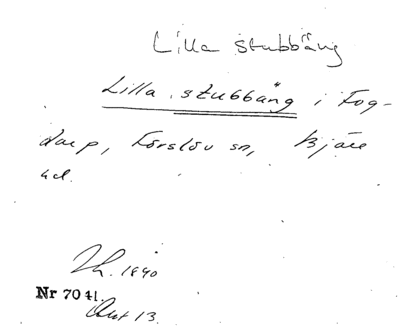 Lilla stubbäng
Lilla stubbäng i Fog-
darp, Förslöv sn, Bjäre
hd.
Th. 1840
Nr 7041.
Akt 13.